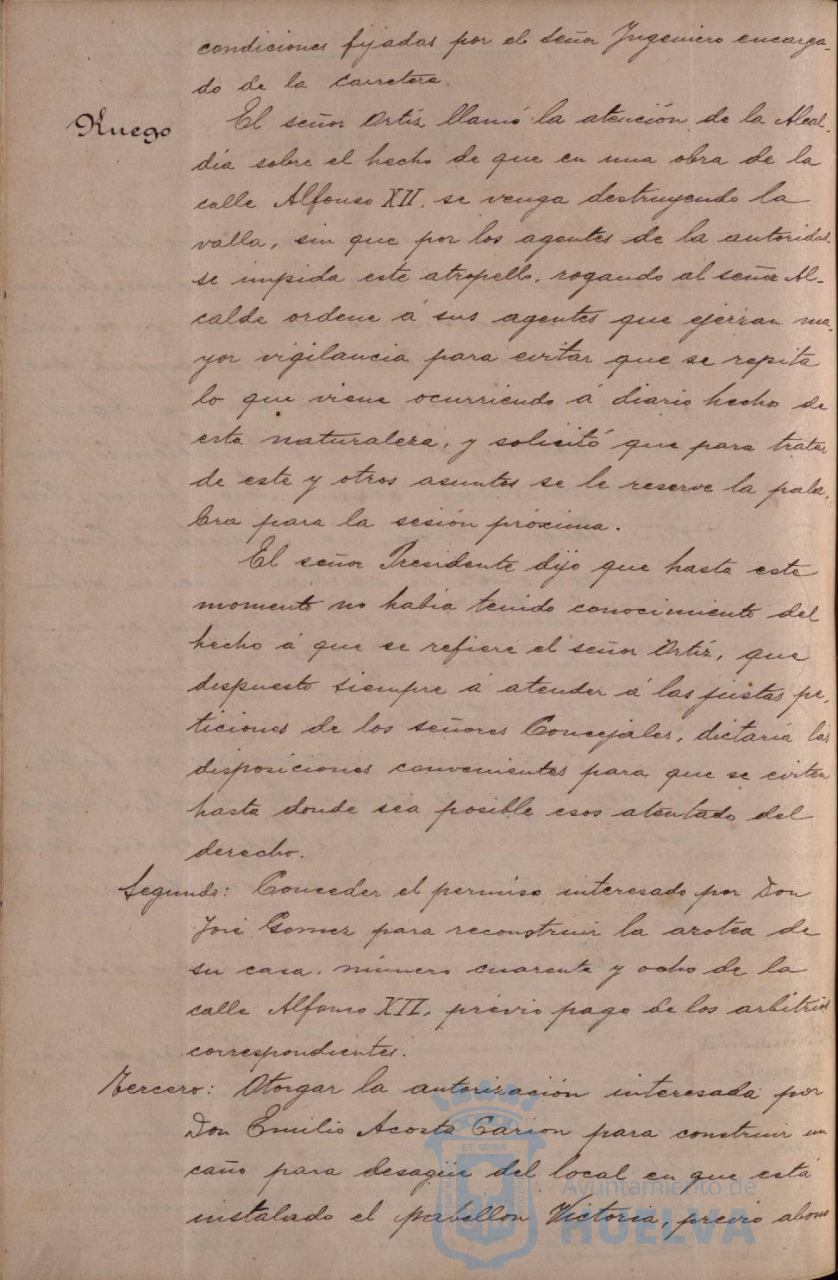 condiciones fijadas por el señor Ingeniero encarga-
do de la carretera.
Ruego
El señor Ortíz llamó la atención de la Alcal-
día sobre el hecho de que en una obra de la
calle Alfonso XII, se venga destruyendo la
valla, sin que por los agentes de la autoridad
se impida este atropello, rogando al señor Al-
calde ordene á sus agentes que ejerzan ma-
yor vigilancia para evitar que se repita
lo que viene ocurriendo á diario hecho de
esta naturaleza, y solicitó que para tratar
de este y otros asuntos se le reserve la pala-
bra para la sesión próxima.
El señor Presidente dijo que hasta este
momento no habia tenido conocimiento del
hecho á que se refiere el señor Ortíz, que
dispuesto siempre á atender á las justas pe-
ticiones de los señores Concejales, dictaría las
disposiciones convenientes para que se eviten
hasta donde sea posible esos atentado del
derecho.
Segundo: Conceder el permiso interesado por Don
José Gomez para reconstruir la azotea de
su casa, número cuarenta y ocho de la
calle Alfonso XII, previo pago de los arbitrios
correspondientes.
Tercero: Otorgar la autorización interesada por
Don Emilio Acosta Carion para construir un
caño para desagüe del local en que está
instalado el pabellon Victoria, previo abono
Ayuntamiento de
HUELVA